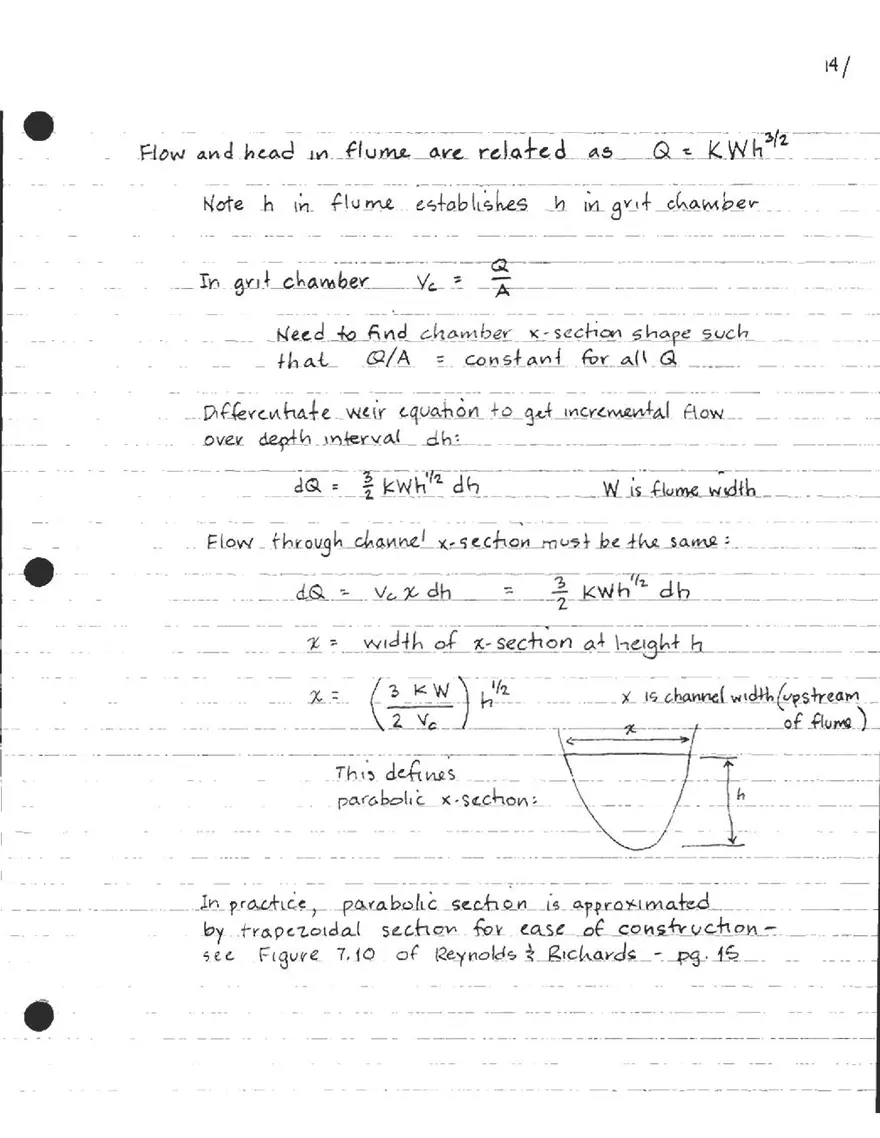 14/
Flow and head in flume are related as Q = KWh^3/2
Note h in flume establishes h in grit chamber
In grit chamber Vc = Q/A
Need to find chamber x-section shape such
that Q/A = constant for all Q
Differentiate weir equation to get incremental flow
over depth interval dh:
dQ = 3/2 KWh^1/2 dh W is flume width
Flow through channel x-section must be the same:
dQ = Vc x dh = 3/2 KWh^1/2 dh
x = width of x-section at height h
x = (3 KW / 2 Vc) h^1/2 x is channel width (upstream
of flume)
x
This defines
parabolic x-section:
h
In practice, parabolic section is approximated
by trapezoidal section for ease of construction -
see Figure 7.10 of Reynolds & Richards - pg. 15